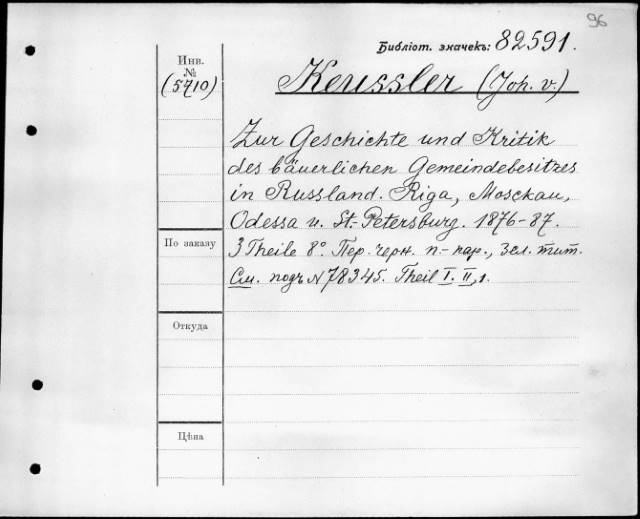 96
Библіот. значекъ: 82591.
Инв.
№
(5710)
Keussler (Joh. v.)
Zur Geschichte und Kritik
des bäuerlichen Gemeindebesitzes
in Russland. Riga, Mosckau,
Odessa u. St.-Petersburg. 1876-87.
3 Theile 8°. Пер. черн. п.-пар., зол. тит.
См. подъ N 78345. Theil I. II,1.
По заказу
Откуда
Цѣна